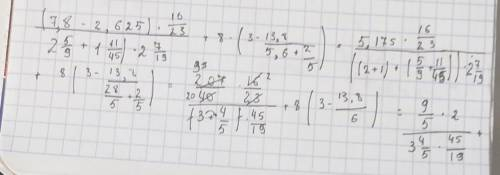 (7,8 - 2,625) · 16/23 / 2 5/9 + 1 11/45) · 2 7/19 + 8 · (3 - 13,8 / 5,6 + 2/5) = 5,175 · 16/23 / ((2+1) + (5/9 + 11/45)) · 2 7/19
+ 8 (3 - 13,8 / 28/5 + 2/5) = 207/40 · 16/23 / (3 + 4/5) · 45/19 + 8 (3 - 13,8 / 6) = 9/5 · 2 / 3 4/5 · 45/19 +